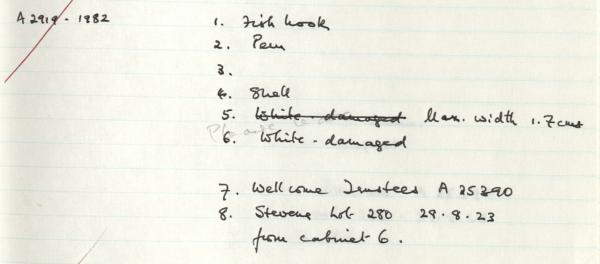 A 2919 - 1982
1. Fish hook
2. Peru
3.
4. Shell
5. White - damaged Max. width 1.7 cms
6. White - damaged
7. Wellcome Trustees A 35390
8. Stevens Lot 280 29.8.23
from cabinet 6.